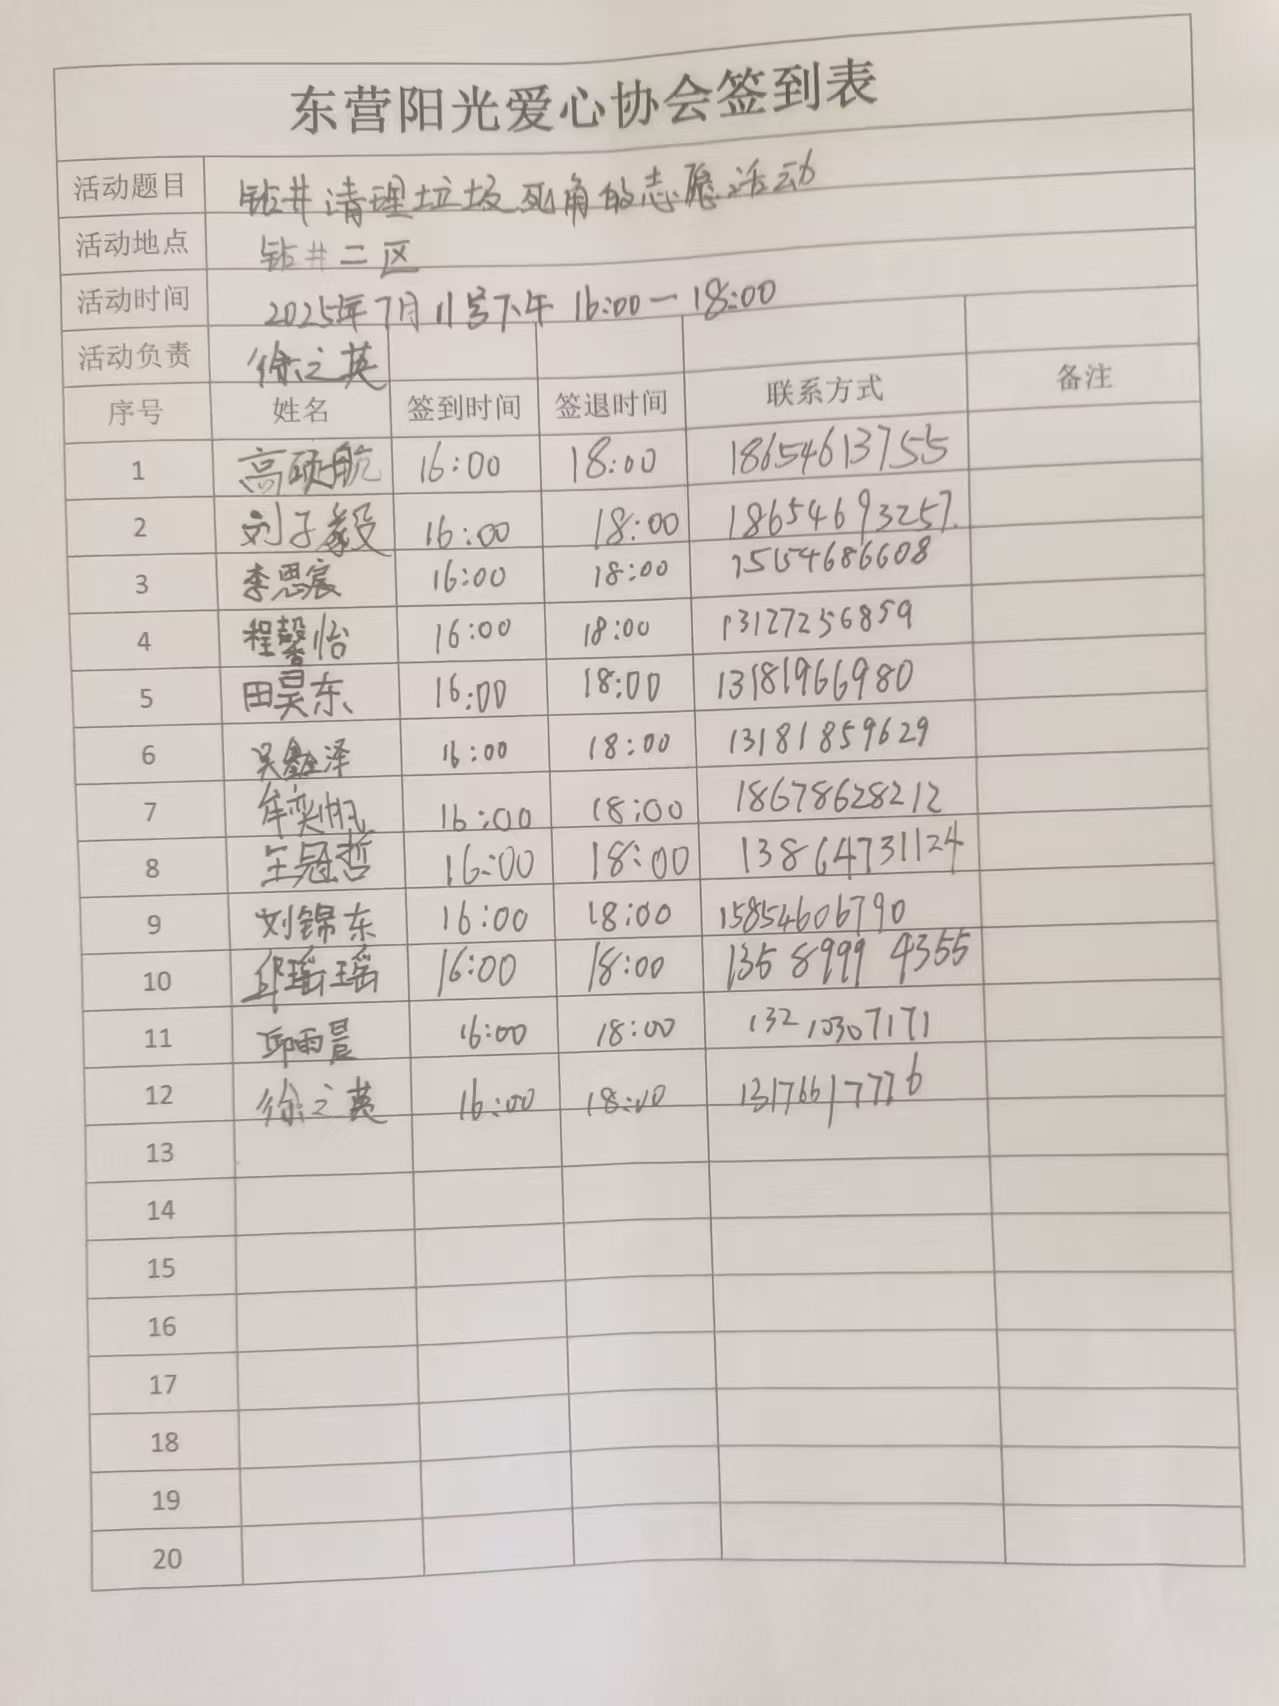 东营阳光爱心协会签到表
活动题目 钻井清理垃圾死角的志愿活动
活动地点 钻井二区
活动时间 2025年7月11号下午 16:00—18:00
活动负责 徐之英
序号 姓名 签到时间 签退时间 联系方式 备注
1 高硕航 16:00 18:00 18654613755
2 刘子毅 16:00 18:00 18654693257
3 李思宸 16:00 18:00 15154686608
4 程馨怡 16:00 18:00 13127256859
5 田昊东 16:00 18:00 13181966980
6 吴鑫泽 16:00 18:00 13181859629
7 牟奕帆 16:00 18:00 18678628212
8 王冠哲 16:00 18:00 13864731124
9 刘锦东 16:00 18:00 15854606790
10 邱瑶瑶 16:00 18:00 135 8999 4355
11 邱雨晨 16:00 18:00 13210307171
12 徐之英 16:00 18:00 13176617776
13
14
15
16
17
18
19
20